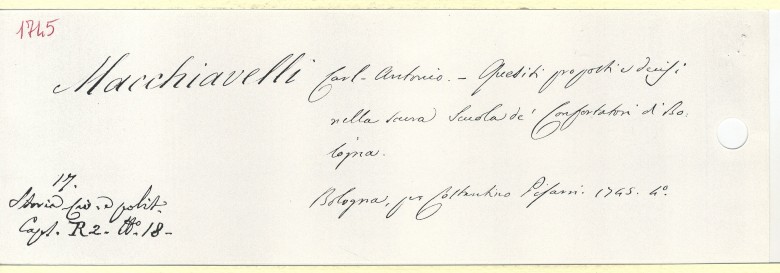 1745
Macchiavelli Carl-Antonio. – Quesiti proposti e decisi
nella scura Scuola de' Confortatori di Bo-
logna.
Bologna, per Costantino Pisarri. 1745. 4º.
17.
Storia Civ. e polit.
Caps. R2. Nº 18-